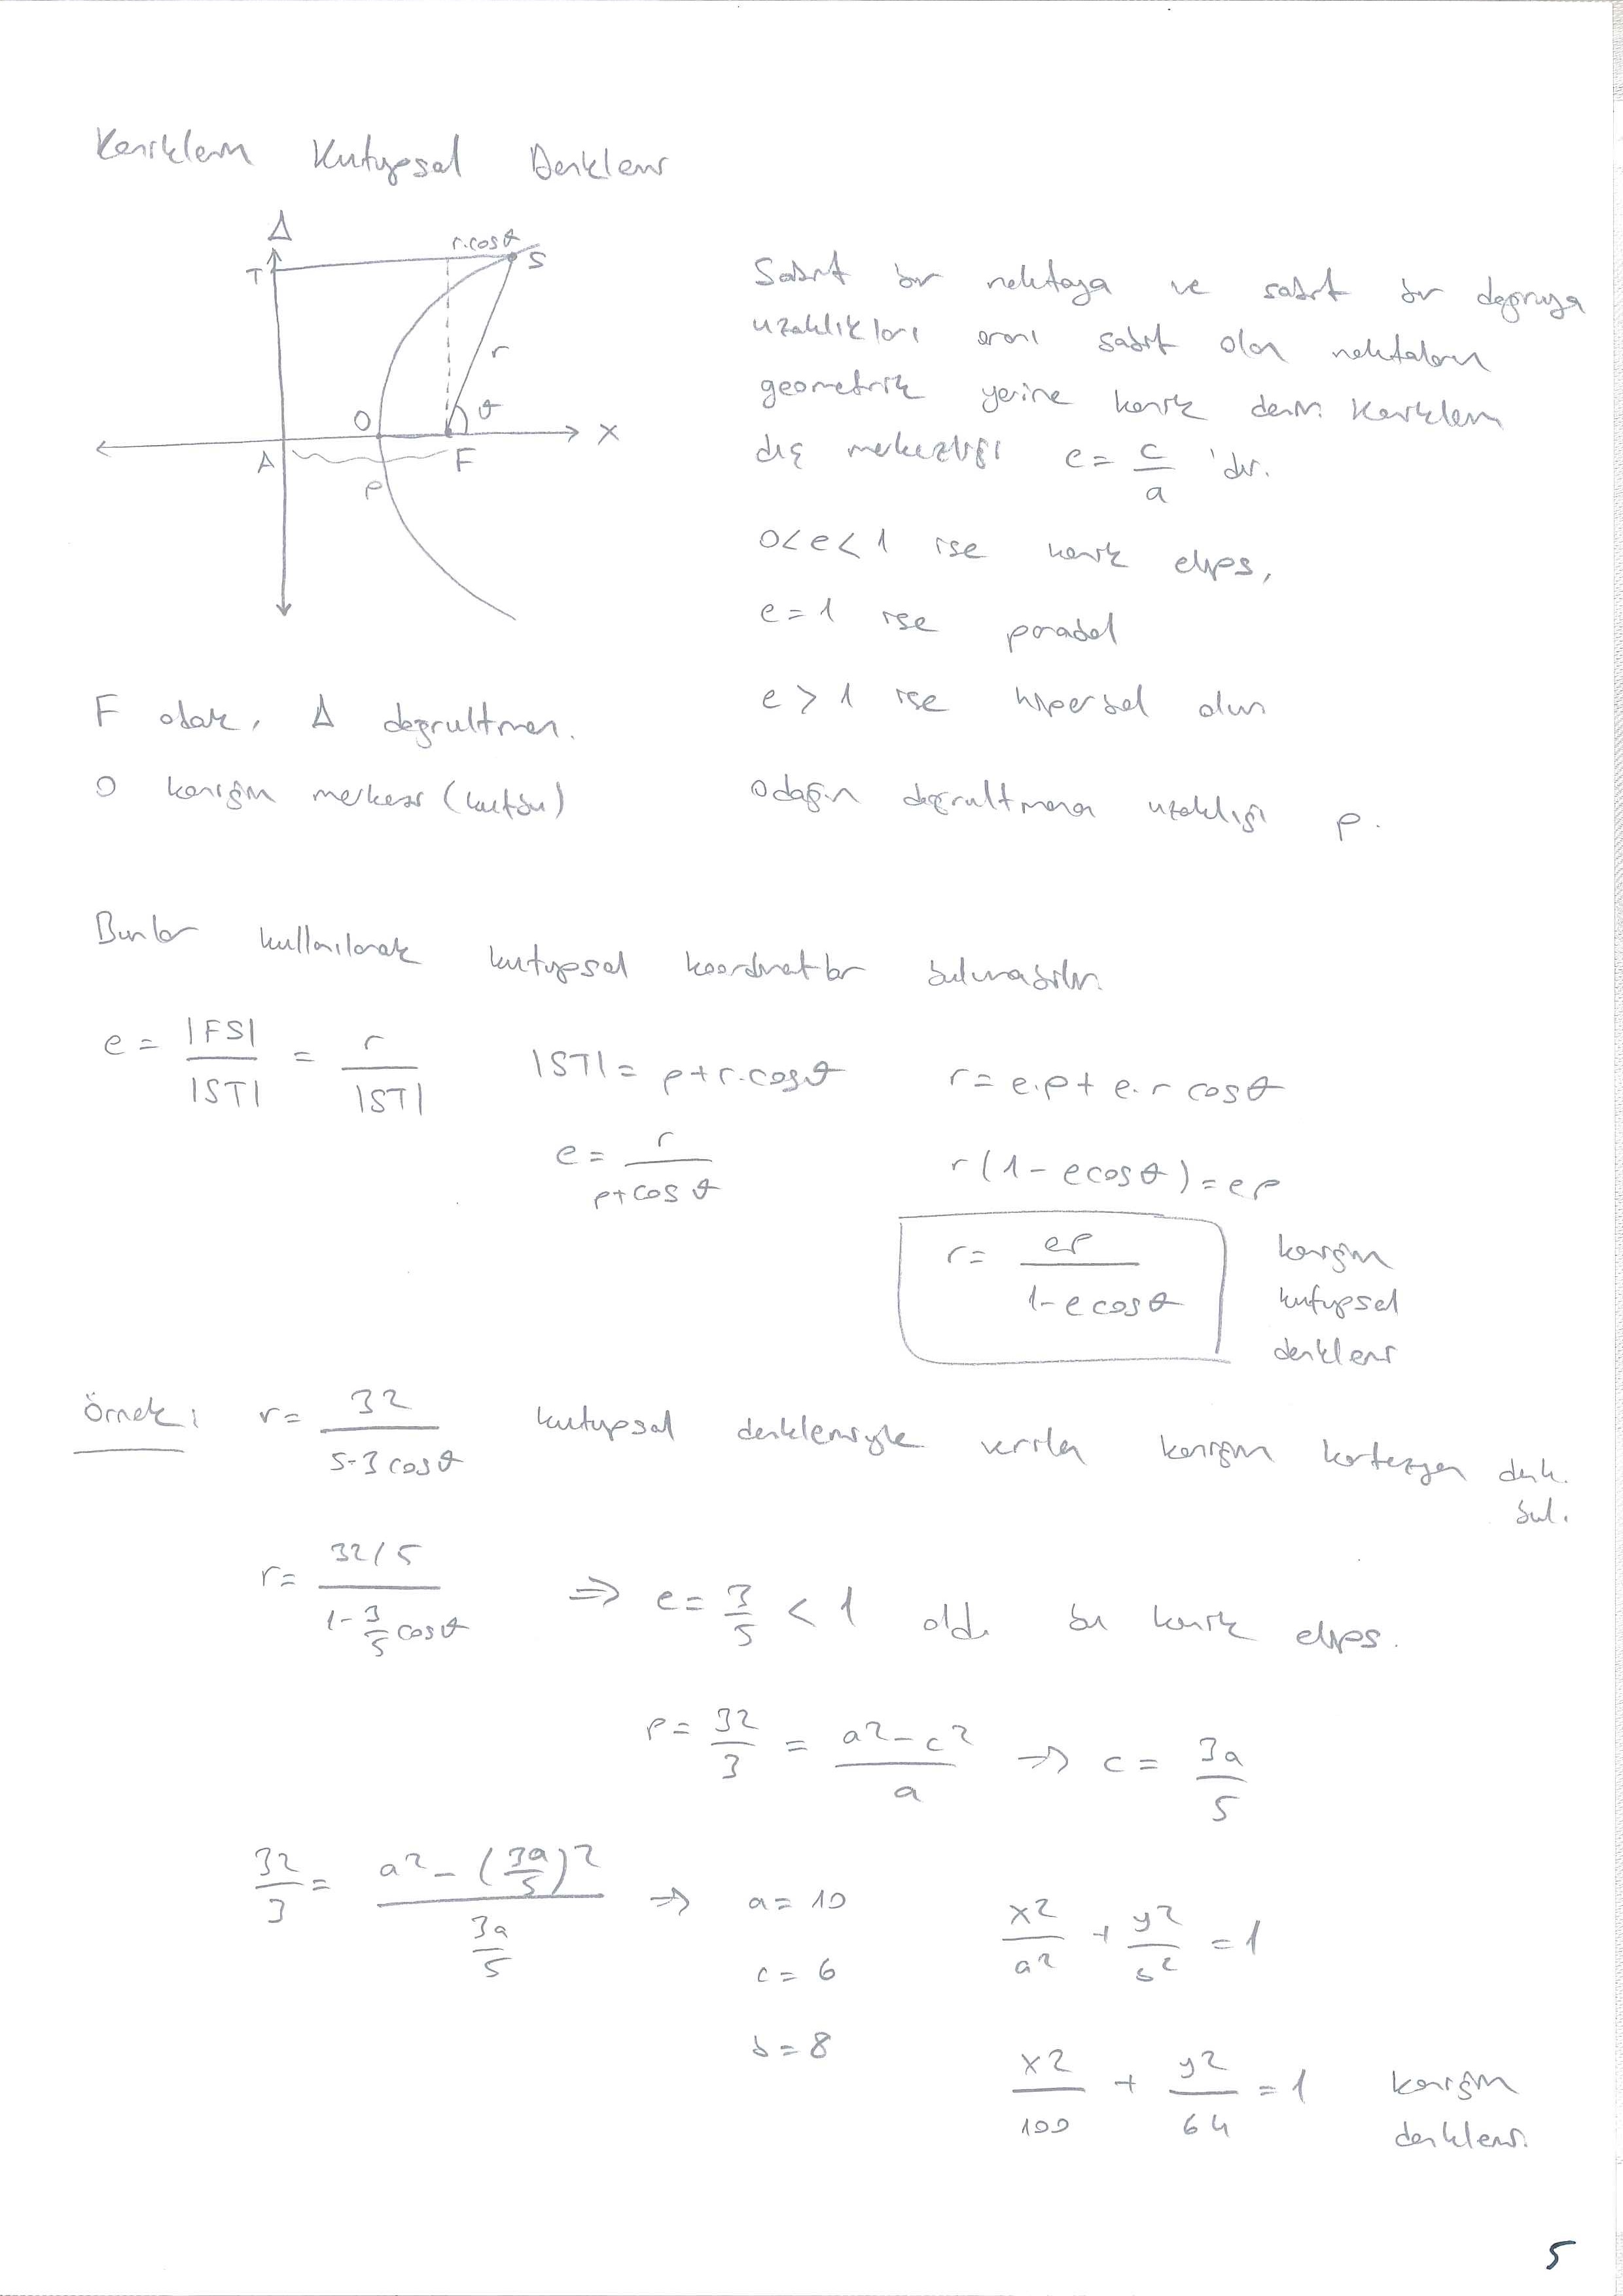 Koniklerin Kutupsal Denklemi
Δ
T
r.cosθ
S
r
O
θ
X
A
F
P
Sabit bir noktaya ve sabit bir doğruya
uzaklıkları oranı sabit olan noktaların
geometrik yerine konik denir. Koniklerin
dış merkezliği e = c/a 'dır.
0<e<1 ise konik elips,
e=1 ise parabol
e>1 ise hiperbol olur
F odak, Δ doğrultman.
O koniğin merkezi (kutbu)
Odağın doğrultmana uzaklığı p.
Bunlar kullanılarak kutupsal koordinatlar bulunabilir.
e = |FS|/|ST| = r/|ST|
|ST| = p+r.cosθ
r = e.p + e.r cosθ
e = r/(p+cosθ)
r(1-ecosθ) = ep
r = ep/(1-ecosθ)
koniğin
kutupsal
denklemi
Örnek: r = 32/(5-3cosθ) kutupsal denklemiyle verilen koniğin kartezyen denk.
bul.
r = (32/5)/(1-3/5 cosθ) ⇒ e = 3/5 < 1 old. bu konik elips.
P = 32/3 = (a²-c²)/a ⇒ c = 3a/5
32/3 = (a²-(3a/5)²)/(3a/5) ⇒ a = 10
c = 6
b = 8
x²/a² + y²/b² = 1
x²/100 + y²/64 = 1
koniğin
denklemi.
5